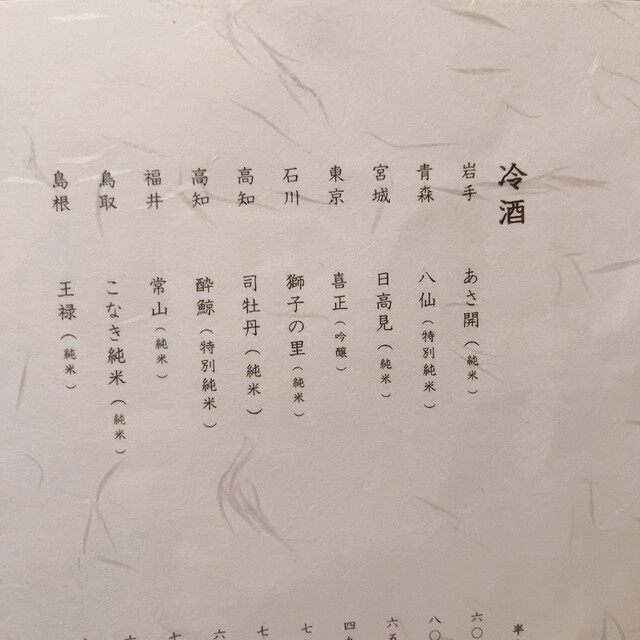 冷酒
岩手 あさ開(純米)
青森 八仙(特別純米)
宮城 日高見(純米)
東京 喜正(吟醸)
石川 獅子の里(純米)
高知 司牡丹(純米)
高知 酔鯨(特別純米)
福井 常山(純米)
鳥取 こなき純米(純米)
島根 王禄(純米)